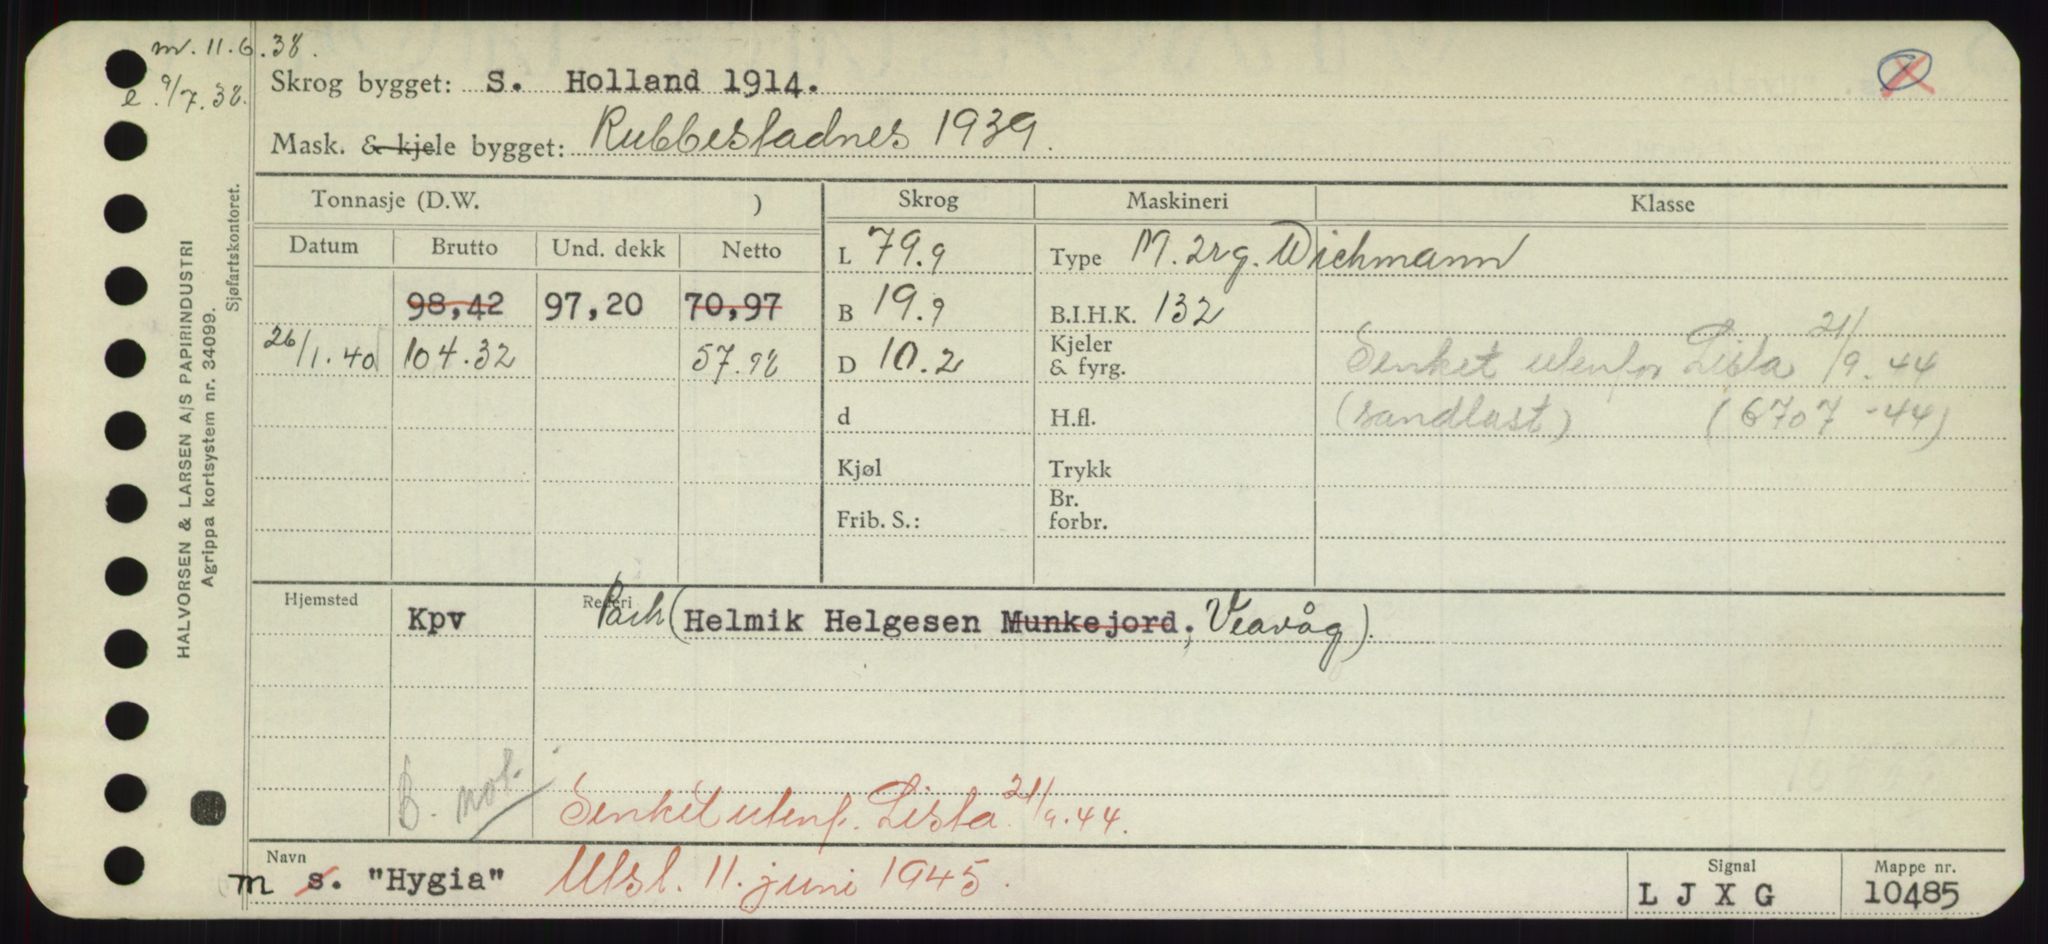 m. 11.6.38.
e. 9/7.38.
Skrog bygget: S. Holland 1914.
Mask. & kjele bygget: Rubbestadnes 1939.
Tonnasje (D.W. )
Skrog
Maskineri
Klasse
Datum
Brutto
Und. dekk
Netto
L 79.9
Type M. 2rg. Wichmann
98,42
97,20
70,97
B 19.9
B.I.H.K. 132
26/1.40
104.32
57.98
D 10.2
Kjeler
& fyrg.
Senket utenfor Lista 21/9.44
d
H.fl.
(sandlast) (6707-44)
Kjøl
Trykk
Frib. S.:
Br.
forbr.
Hjemsted
Kpv
Rederi
(Helmik Helgesen Munkejord, Veavåg).
B. not.
Senket utenf. Lista 21/9.44.
Navn
m s. "Hygia"
Utsl. 11. juni 1945.
Signal
L J X G
Mappe nr.
10485
HALVORSEN & LARSEN A/S PAPIRINDUSTRI
Agrippa kortsystem nr. 34099.
Sjøfartskontoret.